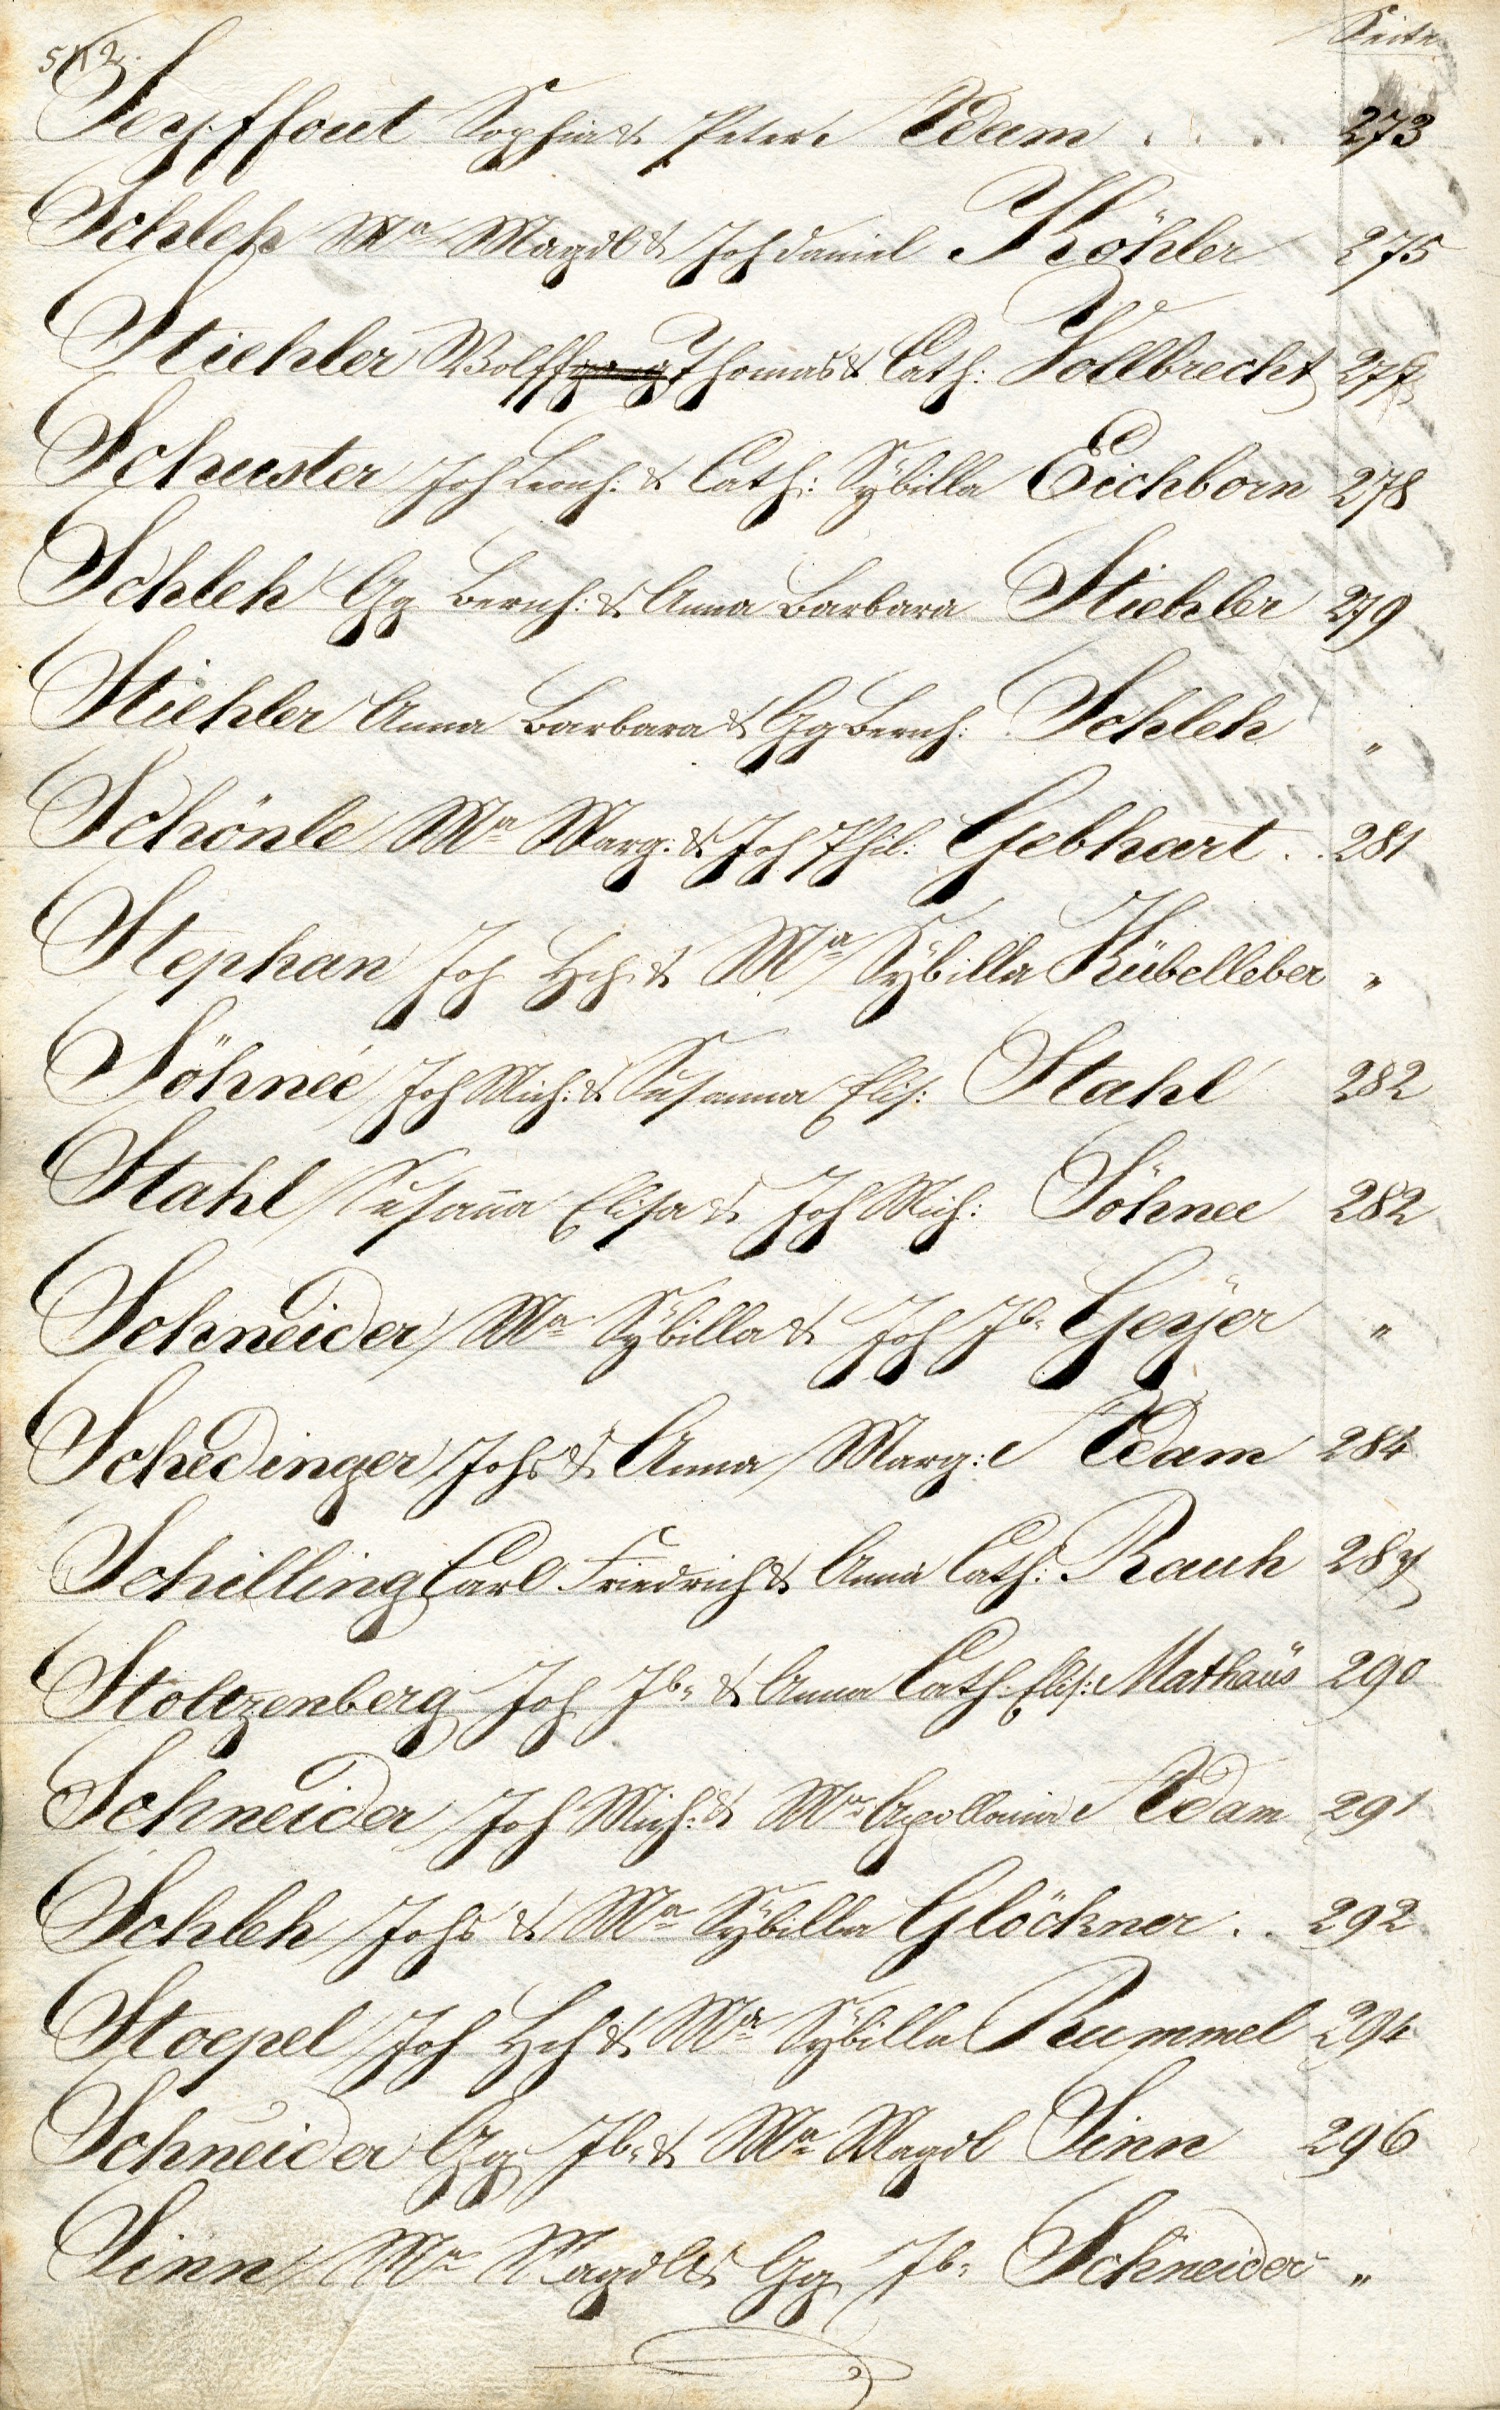 Seite
Seyffout Sophia & Peter Adam . . . . 273
Schleh Ma Magdl & Joh Daniel Köhler 275
Stiehler Wolffgang Thomas & Cath: Vollbrecht 277
Schuster Joh Leonh: & Cath: Sÿbilla Eichborn 278
Schleh Gg Bernh: & Anna Barbara Stiehler 279
Stiehler Anna Barbara & Gg Bernh: Schleh "
Schönle Ma Marg: & Joh Phil: Gebhart . . 281
Stephan Joh Hch: & Ma Sÿbilla Kübelleber "
Söhneé Joh Mich: & Susanna Elis: Stahl 282
Stahl Susana̅ Elisa & Joh Mich: Söhnee 282
Schneider Ma Sÿbilla & Joh Jb: Geÿer "
Schedinger Johs & Anna Marg: Adam 284
Schilling Carl Friedrich & Anna Cath: Rauh 287
Stoltzenberg Joh Jb: & Anna Cath: Elis: Mathäus 290
Schneider Joh Mich: & Ma Apollonia Adam 291
Schleh Johs & Ma Sÿbilla Glöckner . . 292
Stoepel Joh Hch & Ma Sÿbilla Rummel 294
Schneider Gg Jb: & Ma Magdl Sinn 296
Sinn Ma Magdl & Gg Jb: Schneider "